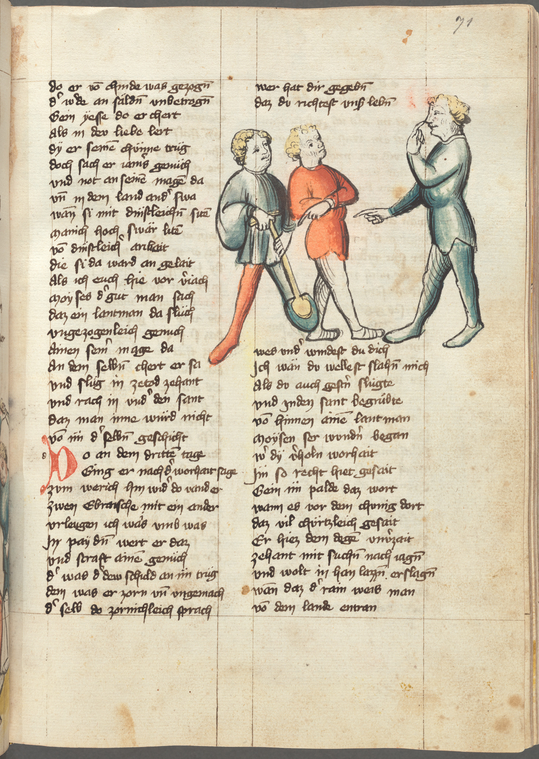 71
do er vō chinde was gezogn
d' wde an säldn̄ unbetrogn
Gein yesse do er chert
als in dew liebe lert
dy er seinē chünne trug
doch sach er iams genuch
und not an seinē magē da
vn̄ in dem land and' swa
wan si mit dinstleichn̄
manich hoch swär
vō dinstleich' arbait
die si da ward an gelait
Als ich euch hie vor
Moyses d' gut man sach
daz ein lantman da slůch
ungezogenleich genuch
Ainen sein' mage da
An dem selbn̄ chert er sa
und slug in zetod zehant
und rach in und' den sant
daz man inne würd nicht
vō im d' selbn̄ geschicht
Do an dem drittē tage
Ging er nach d' worhait sage
zum werich hin und do vand er
zwen Ebraische mit ein ander
urleugen ich wäs umb was
In paydn̄ wert er daz
und straft ainē genuch
d' was d' dew schuld an im trug
dem was er zorn vn̄ ungemach
d' selb do zornichleich sprach
wer hat dir gegebn̄
daz du richtest uns lebn̄
wes und' windest du dich
Ich wän du wellest slahn̄ mich
Als do auch gestn̄ slugte
und Inden sant begrubte
vō hinnen ainē lantman
Moysen ser wundn̄ began
w' dy v'holn worhait
Im so recht hiet gesait
Gein im palde daz wort
wann es vor dem chunig dort
daz vil chürtzleich gesait
Er hiez dem degē unv'zait
zehant mit suchn̄ nach iagn̄
und wolt in han lazzn̄ erslagn̄
wan daz d' rain weis man
vō dem lande entran